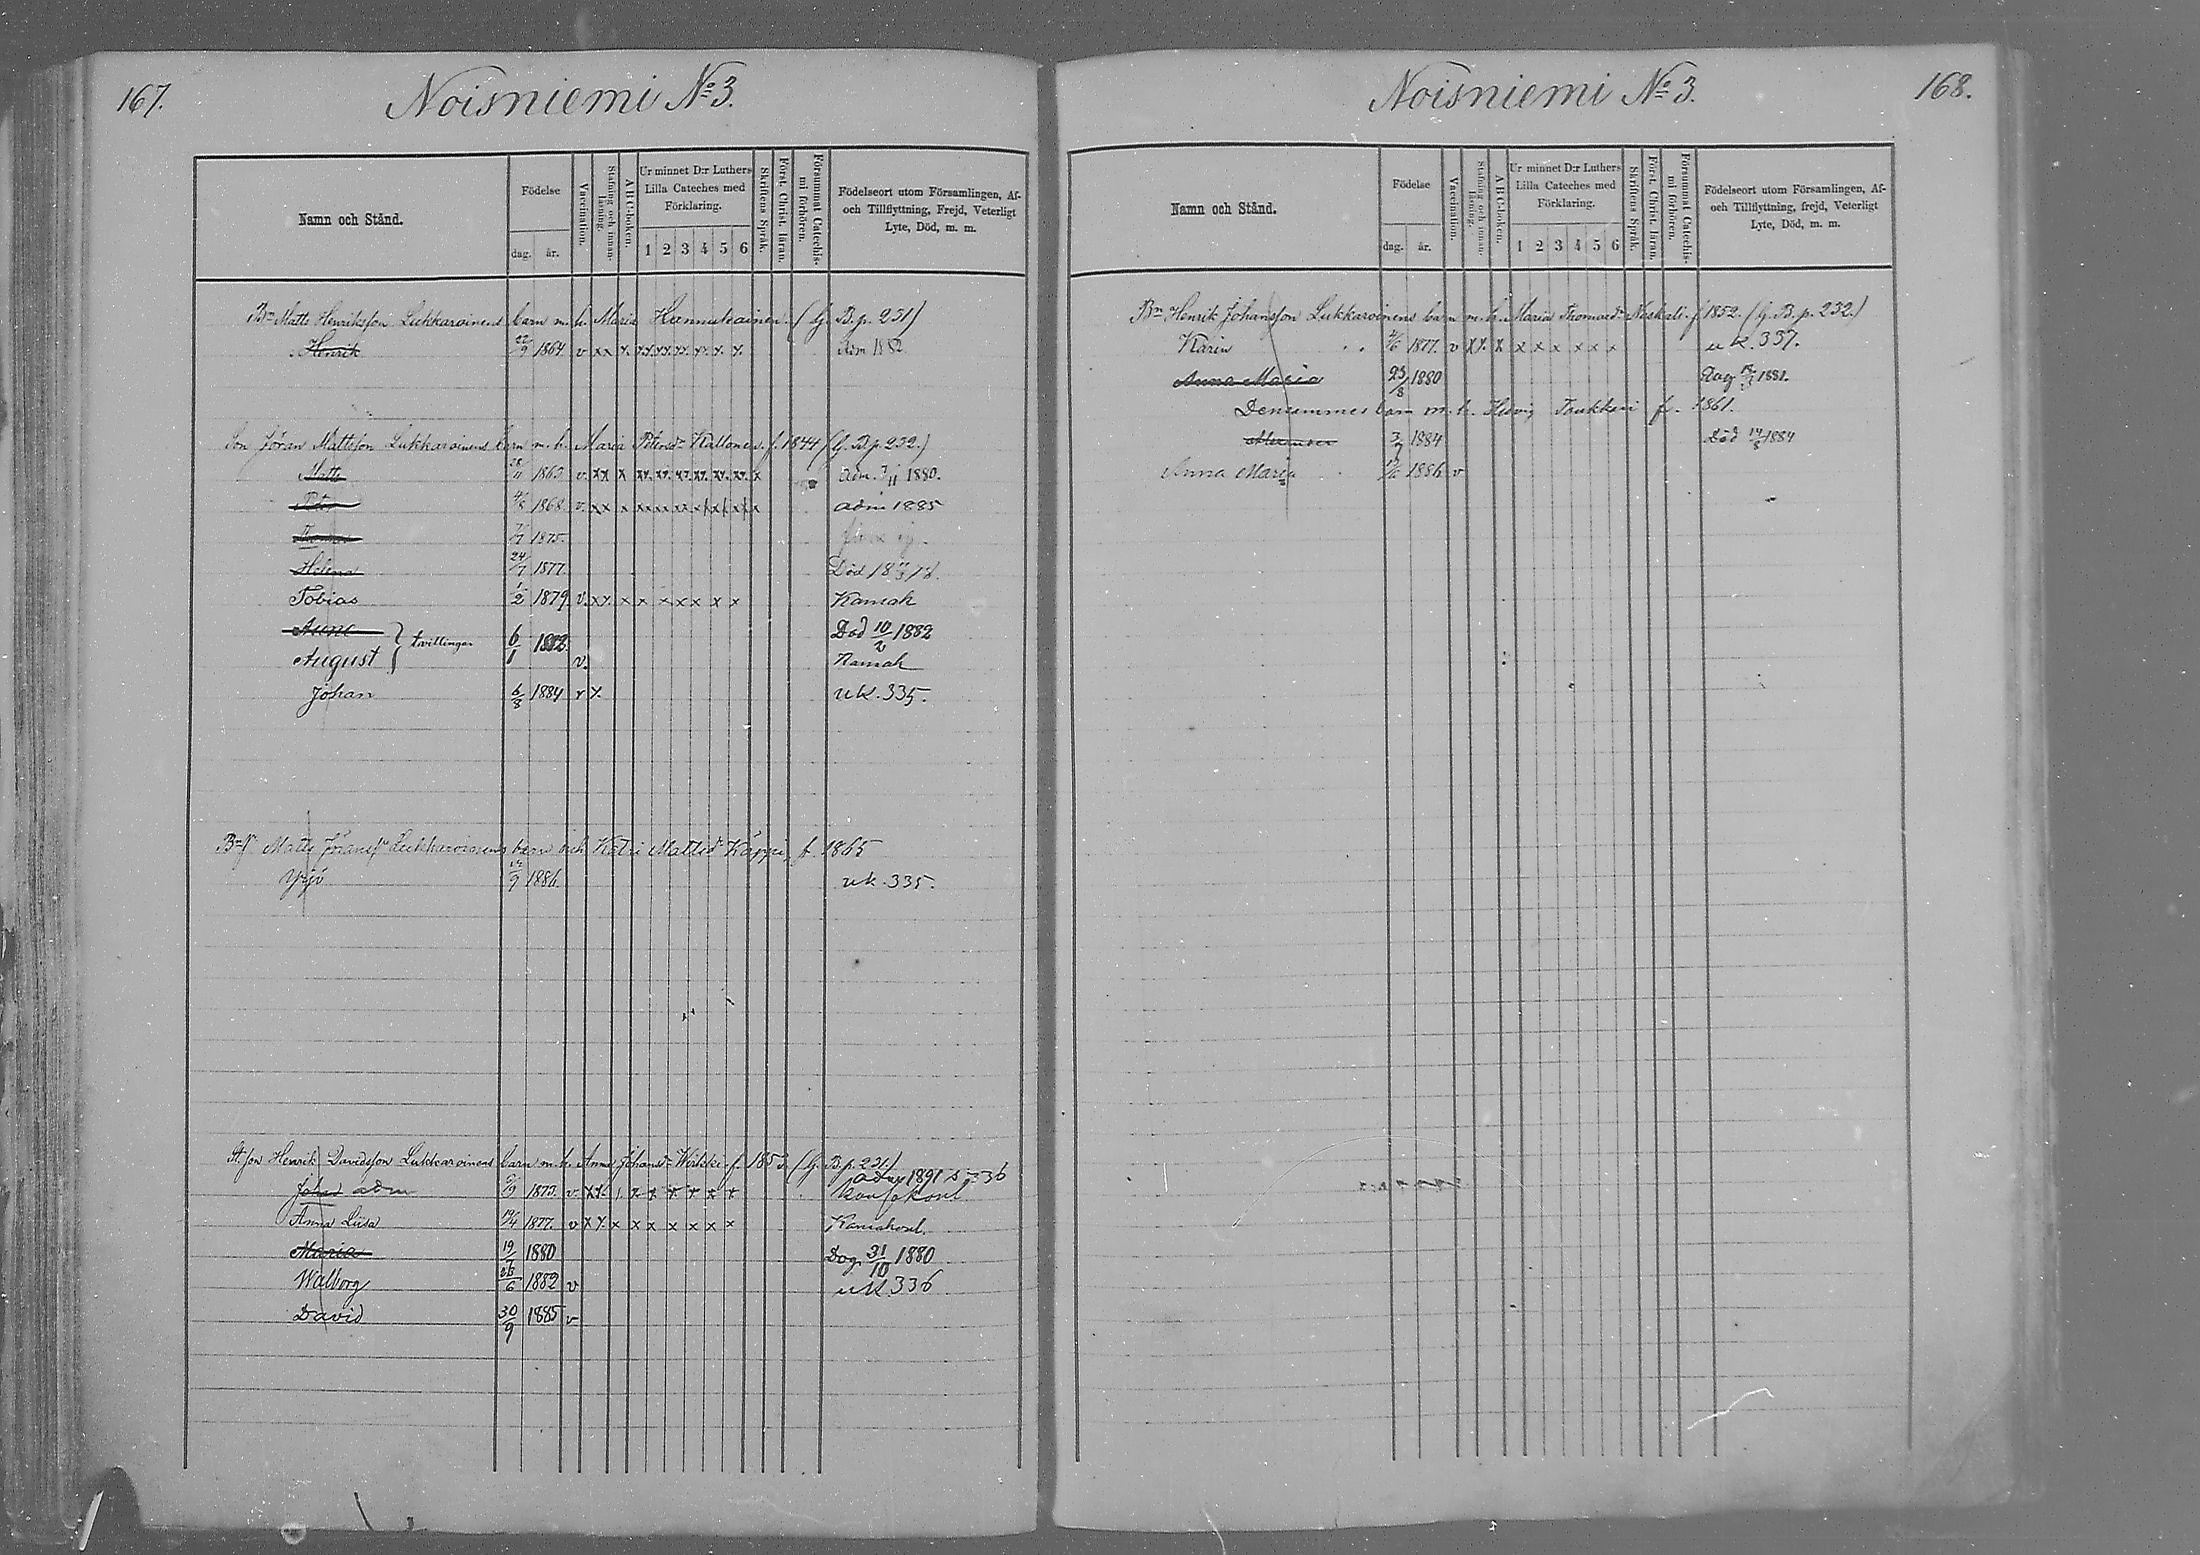 167.
Noisniemi No 3.
Namn och Stånd.
Födelse
dag.
år.
Vaccination.
Stafning och innanläsning.
A B C-boken.
Ur minnet D:r Luthers Lilla Cateches med Förklaring.
1 2 3 4 5 6
Skriftens Språk.
Först. Christ. läran.
Försummat Catechismi förhören.
Födelseort utom Församlingen, Af- och Tillflyttning, Frejd, Veterligt Lyte, Död, m. m.
Bn Matts Henriksson Lukkaroinens barn m. h. Maria Hannukainen. (G. B. p. 231)
Henrik 22/9 1864 v x x x. x.x. x.x. x.x. x. x. x. Adm 1882
Son Jöran Mattsson Lukkaroinens barn m. h. Maria Petersd. f. 1844 (G. B. p. 232.)
Matts 1865 v. xx x xx. xx. xx. xx. xx. xx. x adm. 1880.
Peter 1868 v. xx x xx xx xx xx xx xx x adm 1885
Thomas 1875.
Helena 24/7 1877. Död 18
Tobias 1/2 1879 v. x x. x x x x x x x Kansak
} tvillingar 6/1 1882. Död 10/2 1882
August v. Kansak
Johan 6/8 1884 v x. uk. 335.
Matts Jöranss. Lukkaroinens barn och Katri Mattsd. Käppi, f. 1865
Yrjö 1886. uk. 335.
St. son Henrik Davidsson Lukkaroinens barn m. h. Anna Johansd. Wirkki f. 1853. (G. B. p. 231.)
Johan adm 1875. v. x x. x. x. x. x x x adm 1891 s 336
Anna Liisa 19/4 1877. v x x. x x x x x x x
Maria 19/7 1880 Dog 31/10 1880
Walborg 26/6 1882 v uk. 336
David 30/9 1885 v
168.
Noisniemi No 3.
Namn och Stånd.
Födelse
dag.
år.
Vaccination.
Stafning och innanläsning.
A B C-boken.
Ur minnet D:r Luthers Lilla Cateches med Förklaring.
1 2 3 4 5 6
Skriftens Språk.
Först. Christ. läran.
Försummat Catechismi förhören.
Födelseort utom Församlingen, Af- och Tillflyttning, frejd, Veterligt Lyte, Död, m. m.
Bn Henrik Johansson Lukkaroinens barn m. h. Maria Thomasd. f. 1852. (G. B. p. 232.)
Karin 1877. v x x. x x x x x x x uk. 337.
Anna Maria 23/8 1880 Dog 1881.
Densammes barn m. h. Hedvig f. 1861.
1884 Död 1884
Anna Maria 1886 v